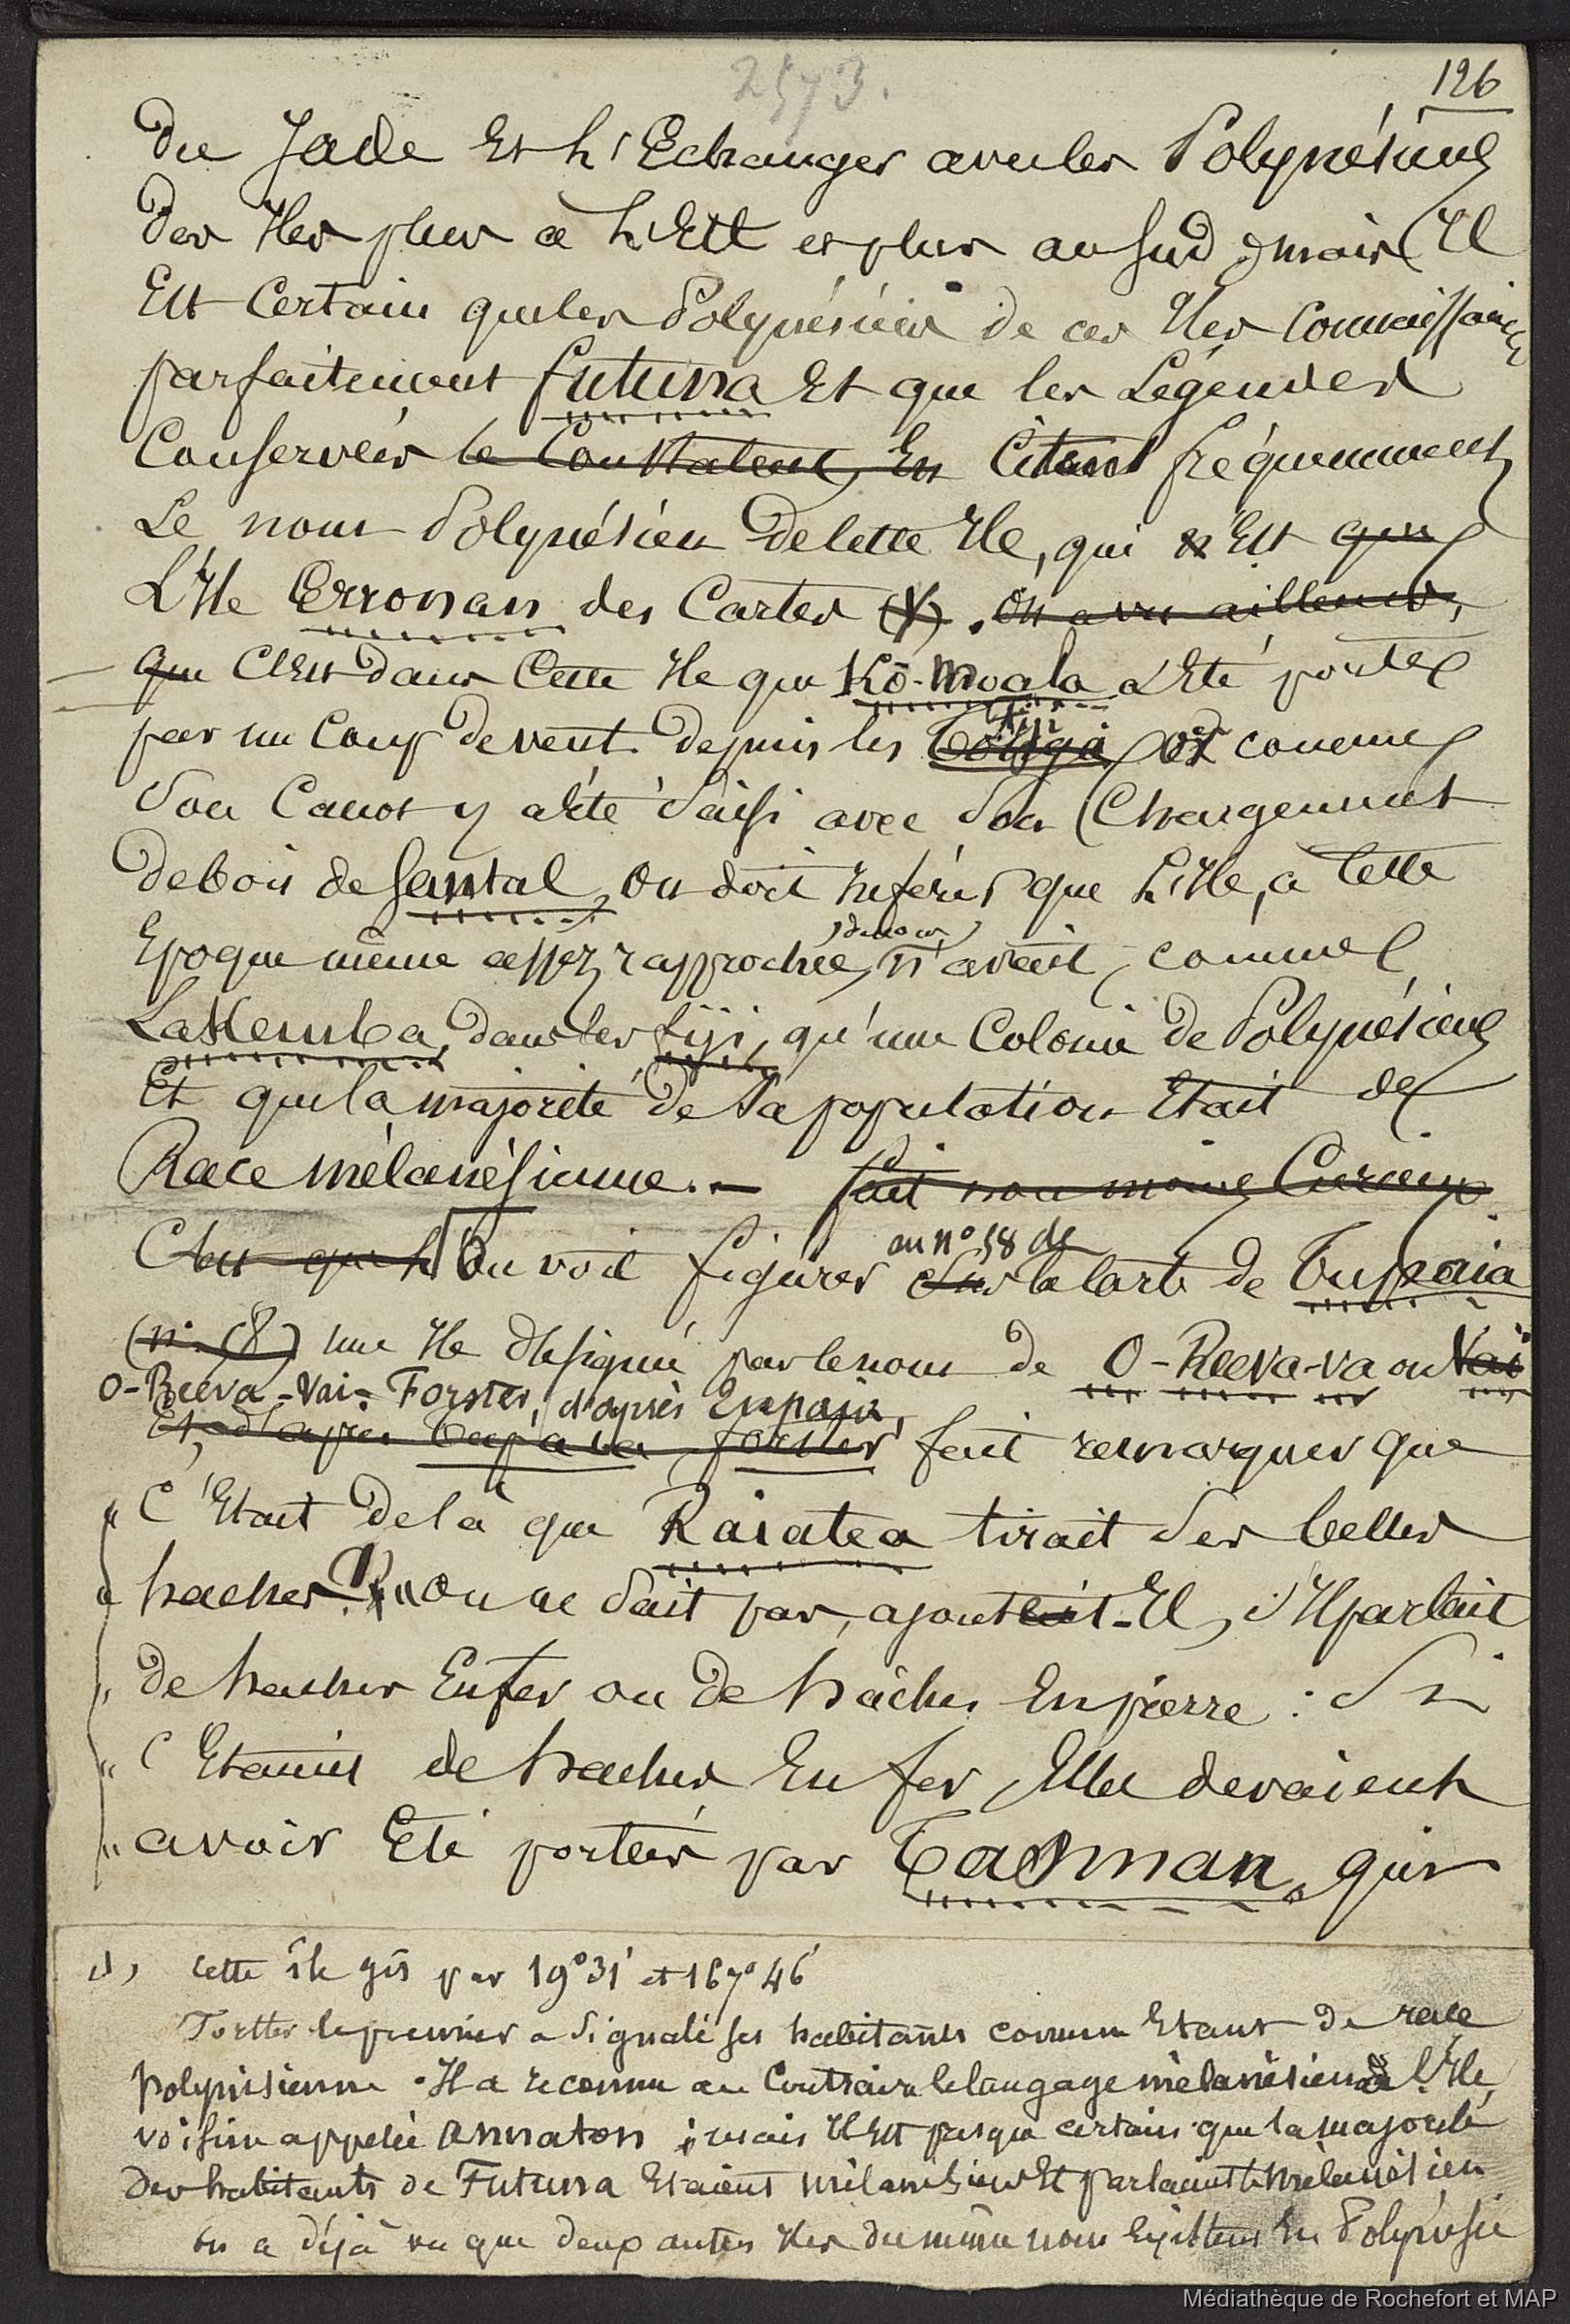 2573.
126
du Jade et l'Echanger avec les Polynésiens
des Iles plus à l'Est et plus au Sud ; mais Il
Est Certain que les Polynésiens de ces Iles connaissaient
parfaitement Futuna Et que les Légendes
Conservées le Constatent, En Citant fréquemment
Le nom Polynésien de cette Ile, qui n'Est que
L'Ile Erronan des Cartes (1). on a vu ailleurs,
que C'Est dans Cette Ile que Kō-Moala a Eté porté
par un Coup de vent depuis les Tonga Fiji et comme
Son Canot y a été saisi avec son Chargement
de bois de Santal, on doit inférer que l'Ile, à cette
Epoque même assez rapprochée de nous, n'avait, comme
Lakemba, dans les Fiji, qu'une Colonie de Polynésiens
Et que la majorité de sa population Etait de
Race mélanésienne. — fait non moins Curieux
C'est que l'On voit figurer sur au n° 58 de la carte de Tupaia
(n° 58) une Ile désignée par le nom de O-Reeva-va ou Vai
O-Reeva-Vai. Forster, d'après Tupaia,
Et, d'après Tupaia Forster fait remarquer que
" C'Etait de là que Raiatea tirait ses belles
" haches. " on ne sait pas, ajoutait-Il, s'Il parlait
" de haches En fer ou de haches En pierre : Si
" C'Etaient de haches En fer, Elles devaient
" avoir Eté portées par Tasman, qui
(1) Cette île gît par 19°31' et 167°46'
Forster le premier a signalé ses habitants comme Etant de race
polynésienne. Il a reconnu au Contraire le langage mélanésien à l'Ile
voisine appelée Annatom ; mais Il Est presque certain que la majorité
des habitants de Futuna Etaient mélanésiens Et parlaient le mélanésien
on a déjà vu que deux autres Iles du même nom Existent En Polynésie
Médiathèque de Rochefort et MAP